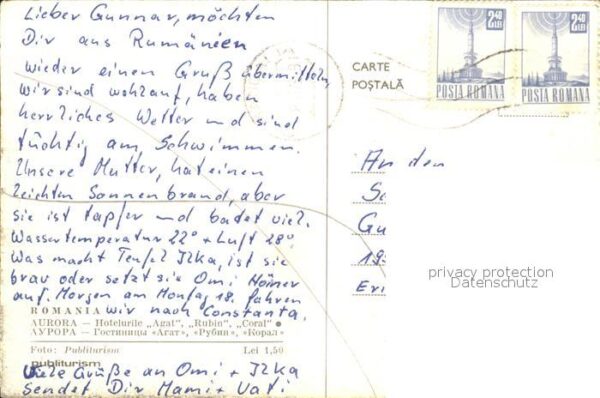 Lieber Gunnar, möchten
Dir aus Rumänien
wieder einen Gruß übermitteln,
wir sind wohlauf, haben
herrliches Wetter und sind
tüchtig am Schwimmen.
Unsere Mutter, hat einen
leichten Sonnenbrand, aber
sie ist tapfer und badet viel.
Wassertemperatur 22° + Luft 28°
Was macht Teufel Ilka, ist sie
brav oder setzt sie Omi Hörner
auf. Morgen am Montag 18. fahren
wir nach Constanta.
ROMANIA
AURORA — Hotelurile „Agat", „Rubin", „Coral" ●
АУРОРА — Гостиницы «Агат», «Рубин», «Корал»
Foto: Publiturism Lei 1,50
publiturism
Viele Grüße an Omi + Ilka
sendet Dir Mami + Vati
CARTE
POŞTALĂ
2,40
LEI
POSTA ROMANA
2,40
LEI
POSTA ROMANA
An den
Gu
19
Eri
privacy protection
Datenschutz